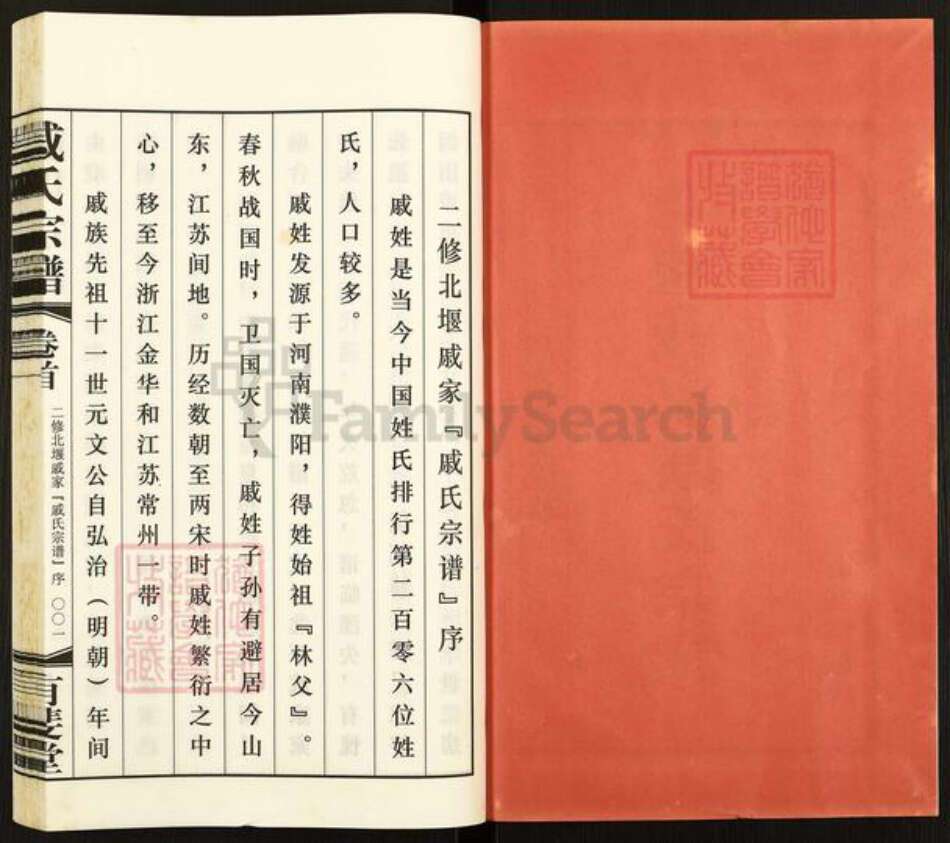 二修北堰戚家『戚氏宗谱』序
戚姓是当今中国姓氏排行第二百零六位姓
氏，人口较多。
戚姓发源于河南濮阳，得姓始祖『林父』。
春秋战国时，卫国灭亡，戚姓子孙有避居今山
东，江苏间地。历经数朝至两宋时戚姓繁衍之中
心，移至今浙江金华和江苏常州一带。
戚族先祖十一世元文公自弘治（明朝）年间
戚氏宗谱 卷首 二修北堰戚家『戚氏宗谱』序 〇〇一 有斐堂
FamilySearch